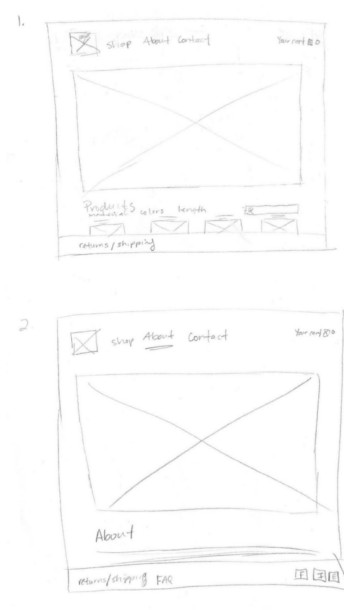 1.
shop About Contact Your cart 0
Products
colors Length
returns/shipping
2
shop About Contact Your cart 0
About
returns/shipping FAQ
F